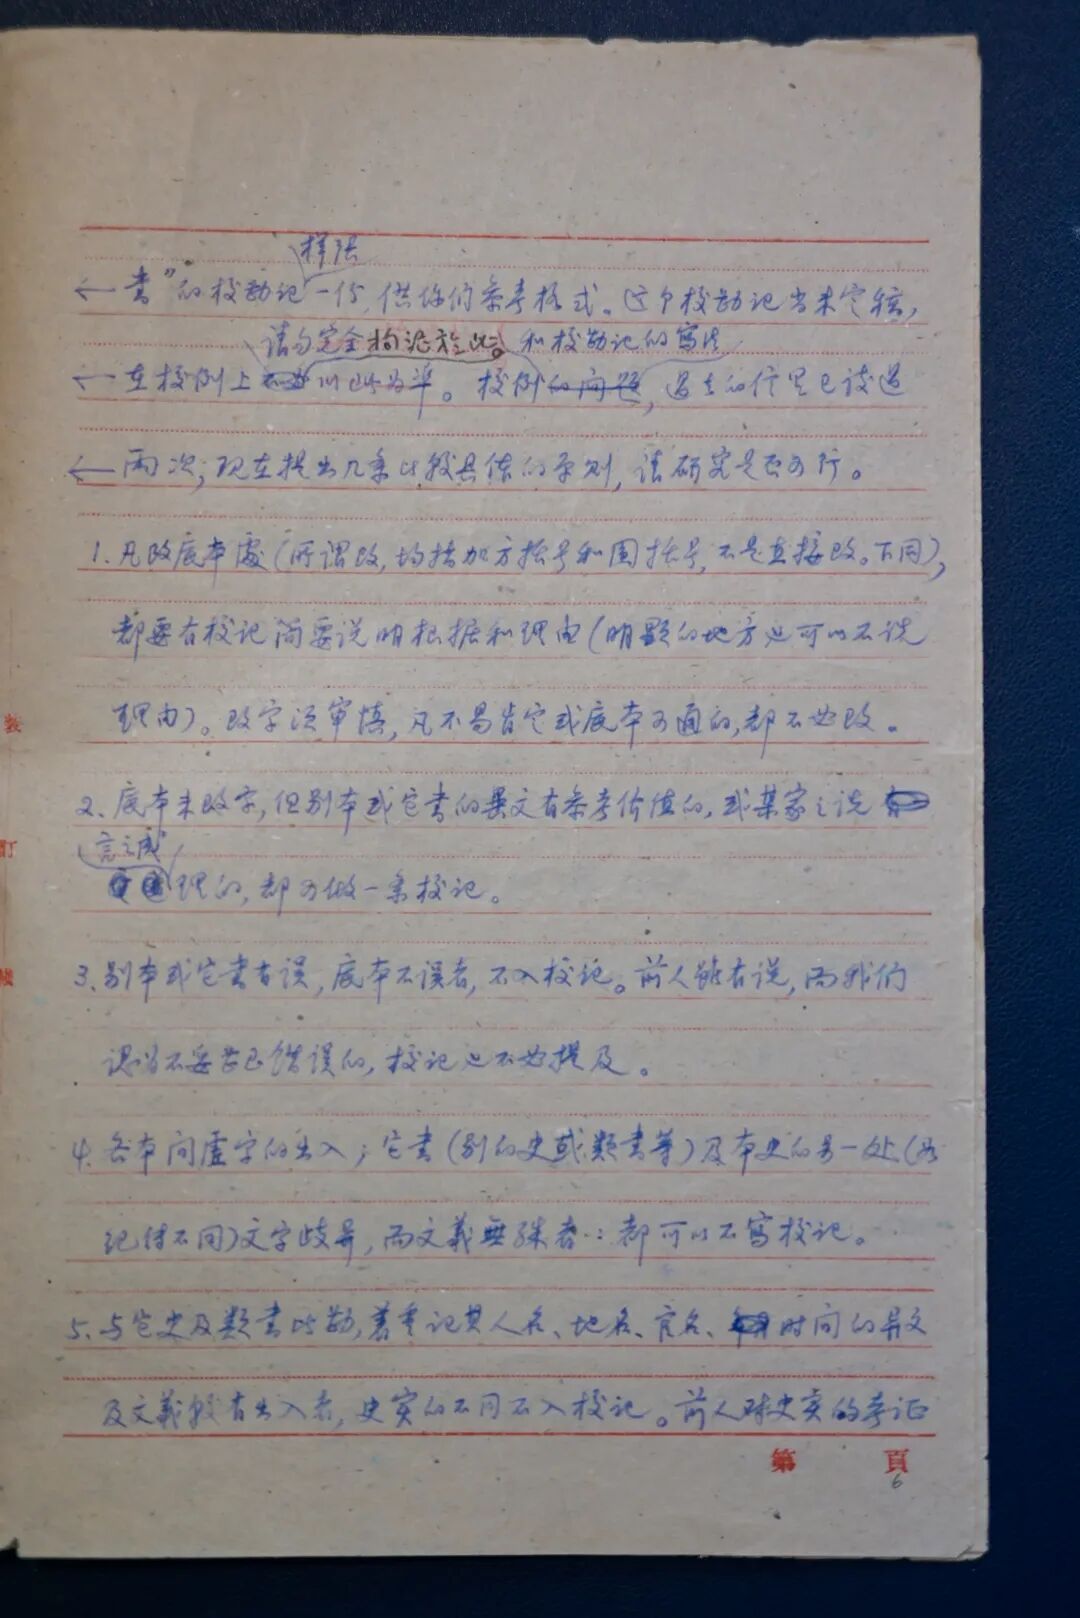 样张
← 書”的校勘记一份,供你们参考格式。这个校勘记尚未定稿,
请勿完全拘泥於此。 和校勘记的寫法
← 在校例上 以此为准。校例的问题,过去的信里已谈过
← 两次;现在提出几条比较具体的原则,请研究是否可行。
1.凡改底本處(所谓改,均指加方括号和圆括号,不是直接改。下同),
都要有校记简要说明根据和理由(明顯的地方也可以不说
理由)。改字须审慎,凡不易肯定或底本可通的,都不必改。
2.底本未改字,但别本或它書的異文有参考价值的,或某家之说
言之成
理的,都可做一条校记。
3.别本或它書有误,底本不误者,不入校记。前人虽有说,而我们
认为不妥当已错误的,校记也不必提及。
4.各本间虚字的出入;它書(别的史或類書等)及本史的另一处(如
纪传不同)文字歧异,而文義無殊者:都可以不寫校记。
5.与它史及類書比勘,着重记其人名、地名、官名、时间的异文
及文義較有出入者,史实的不同不入校记。前人对史实的考证
第 頁
6
教
訂